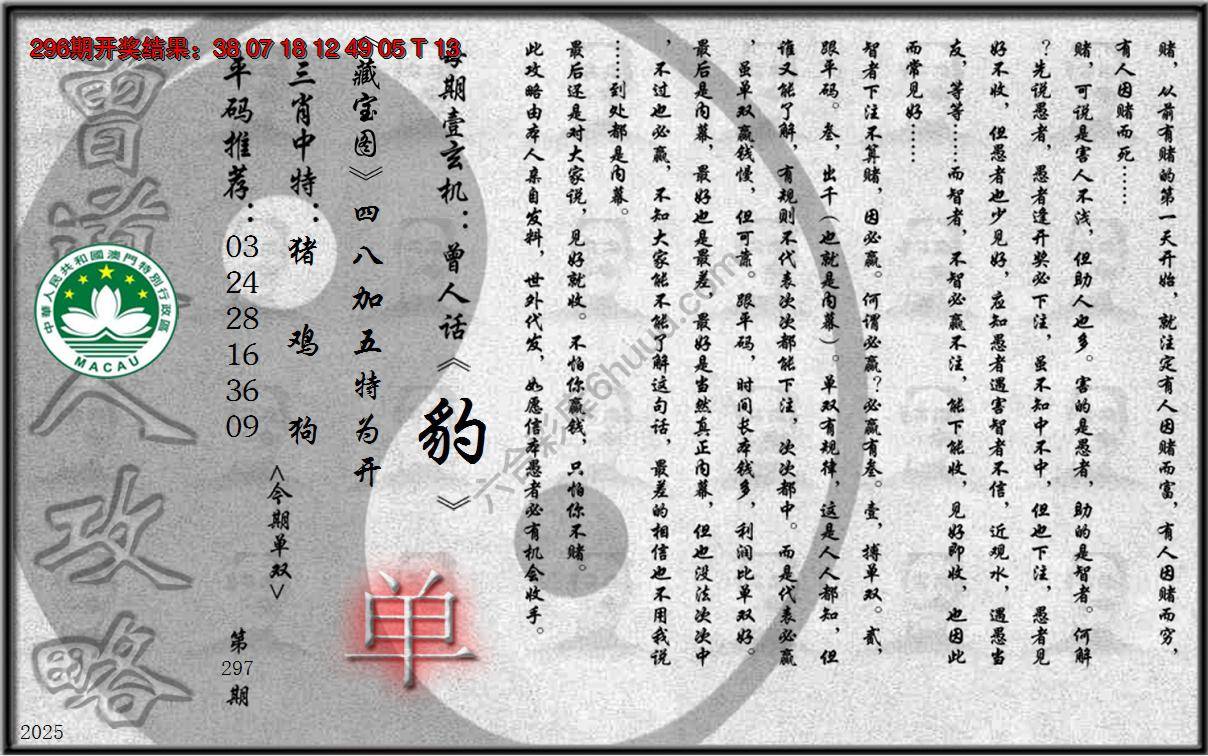 296期开奖结果：38 07 18 12 49 05 T 13
赌，从前有赌的第一天开始，就注定有人因赌而富，有人因赌而穷，
有人因赌而死……
赌，可说是害人不浅，但助人也多。害的是愚者，助的是智者。何解
？先说愚者，愚者逢开奖必下注，虽不知中不中，但也下注，愚者见
好不收，但愚者也少见好，应知愚者遇害智者不信，近观水，遇愚当
友，等等……而智者，不智必赢不注，能下能收，见好即收，也因此
而常见好……
智者下注不算赌，因必赢。何谓必赢？必赢有叁。壹，搏单双。贰，
跟平码。叁，出千（也就是内幕）。单双有规律，这是人人都知，但
谁又能了解，有规则不代表次次都能下注，次次都中。而是代表必赢
，虽单双赢钱慢，但可靠。跟平码，时间长本钱多，利润比单双好。
最后是内幕，最好也是最差，最好是当然真正内幕，但也没法次次中
，不过也必赢，不知大家能不能了解这句话，最差的相信也不用我说
……到处都是内幕。
最后还是对大家说，见好就收。不怕你赢钱，只怕你不赌。
此攻略由本人亲自发料，世外代发，如愿信本愚者必有机会收手。
每期壹玄机：曾人话《豹》
《藏宝图》四八加五特为开
单
三肖中特：猪 鸡 狗
<今期单双>
平码推荐：
03
24
28
16
36
09
第
297
期
曾道人攻略
中華人民共和國澳門特別行政區
MACAU
六合彩库6huuu.com
2025